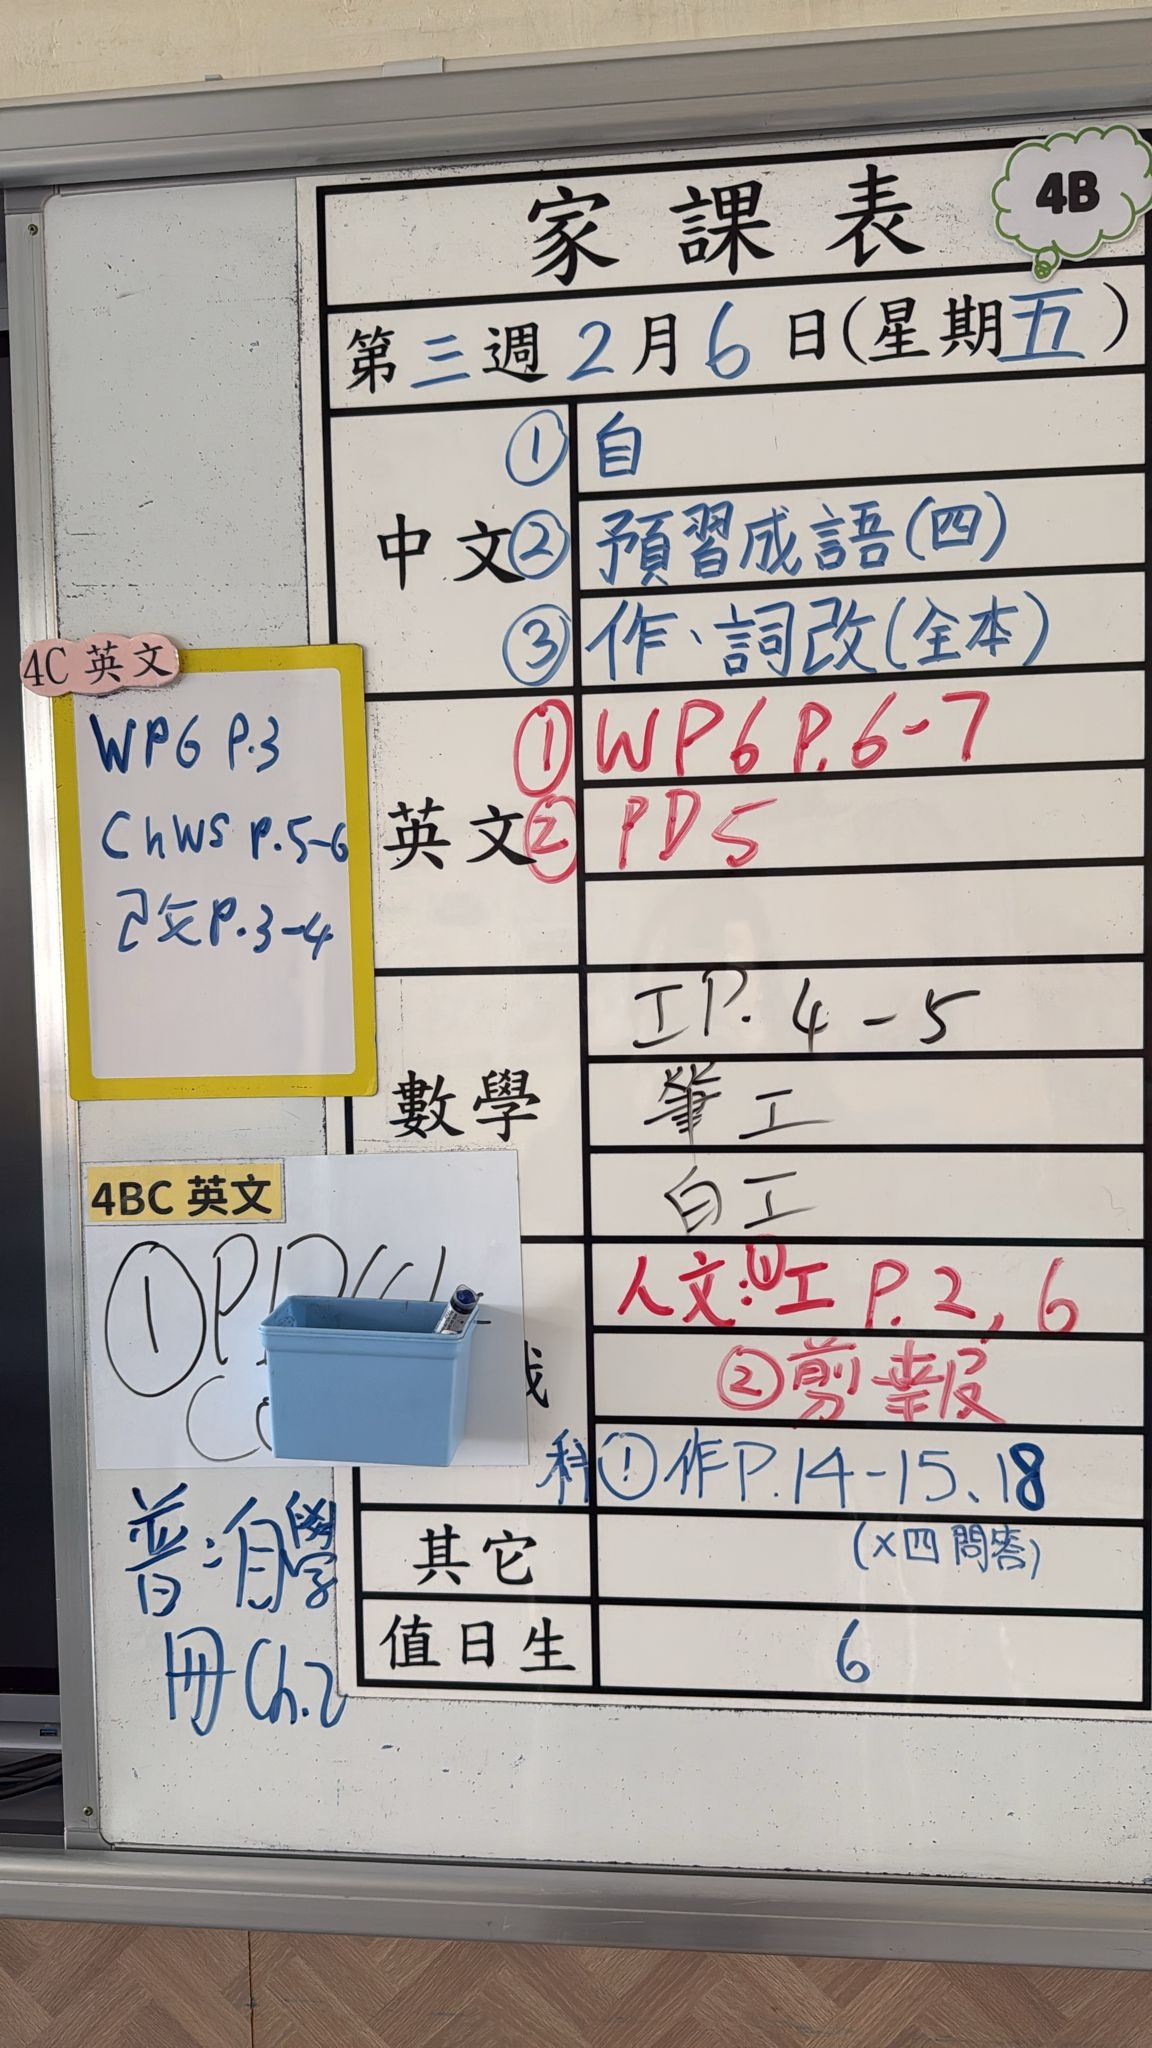 家課表
4B
第三週2月6日(星期五)
中文
① 自
② 預習成語(四)
③ 作、詞改(全本)
英文
① WP6 P.6-7
② PD5
數學
工P.4-5
筆工
白工
人文:①工 P.2, 6
②剪報
科①作P.14-15、18
其它
(×四問答)
值日生
6
4C 英文
WP6 P.3
ChWS P.5-6
改P.3-4
4BC 英文
①
普:自學
冊Ch.2